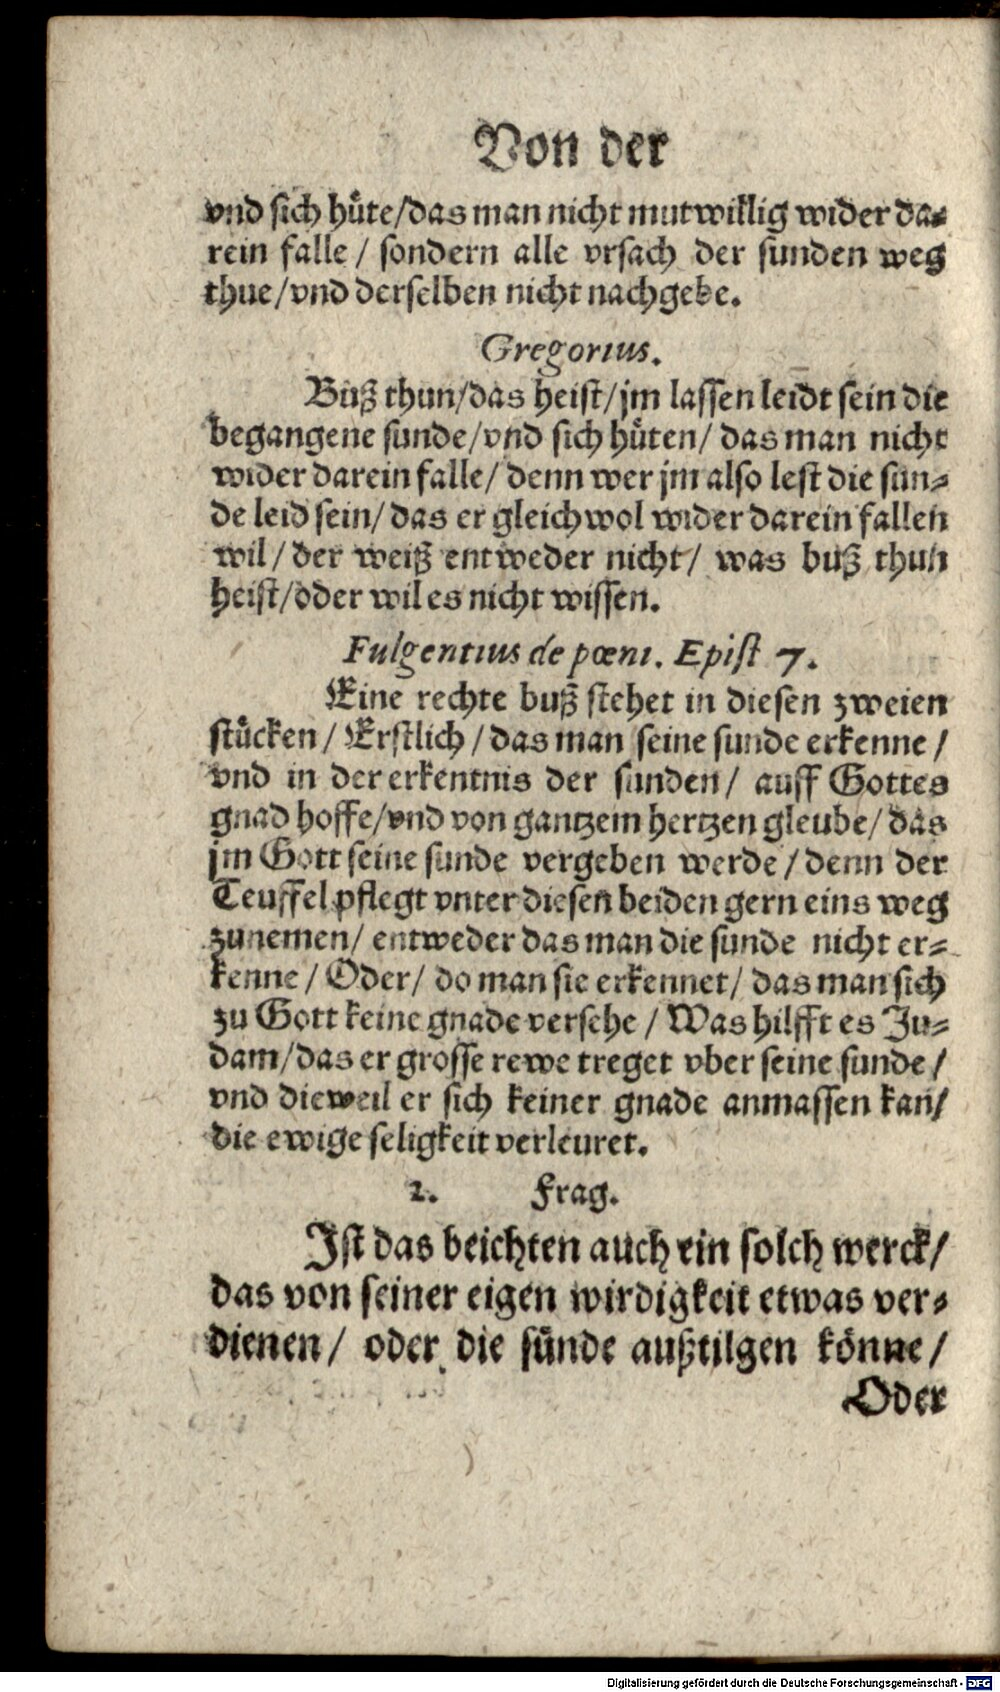 Von der
vnd sich hüte/das man nicht mutwillig wider da-
rein falle / sondern alle vrsach der sunden weg
thue/vnd derselben nicht nachgebe.
Gregorius.
Buß thun/das heist/jm lassen leidt sein die
begangene sunde/vnd sich hüten/ das man nicht
wider darein falle/ denn wer jm also lest die sun-
de leid sein/ das er gleichwol wider darein fallen
wil/ der weiß entweder nicht/ was buß thun
heist/oder wil es nicht wissen.
Fulgentius de pœni. Epist 7.
Eine rechte buß stehet in diesen zweien
stücken/ Erstlich/ das man seine sunde erkenne/
vnd in der erkentnis der sunden/ auff Gottes
gnad hoffe/vnd von gantzem hertzen gleube/ das
jm Gott seine sunde vergeben werde/ denn der
Teuffel pflegt vnter diesen beiden gern eins weg
zunemen/ entweder das man die sunde nicht er-
kenne/ Oder/ do man sie erkennet/ das man sich
zu Gott keine gnade versehe/ Was hilfft es Ju-
dam/das er grosse rewe treget vber seine sunde/
vnd dieweil er sich keiner gnade anmassen kan/
die ewige seligkeit verleuret.
2. Frag.
Ist das beichten auch ein solch werck/
das von seiner eigen wirdigkeit etwas ver-
dienen/ oder die sünde außtilgen könne/
Oder
Digitalisierung gefördert durch die Deutsche Forschungsgemeinschaft - DFG